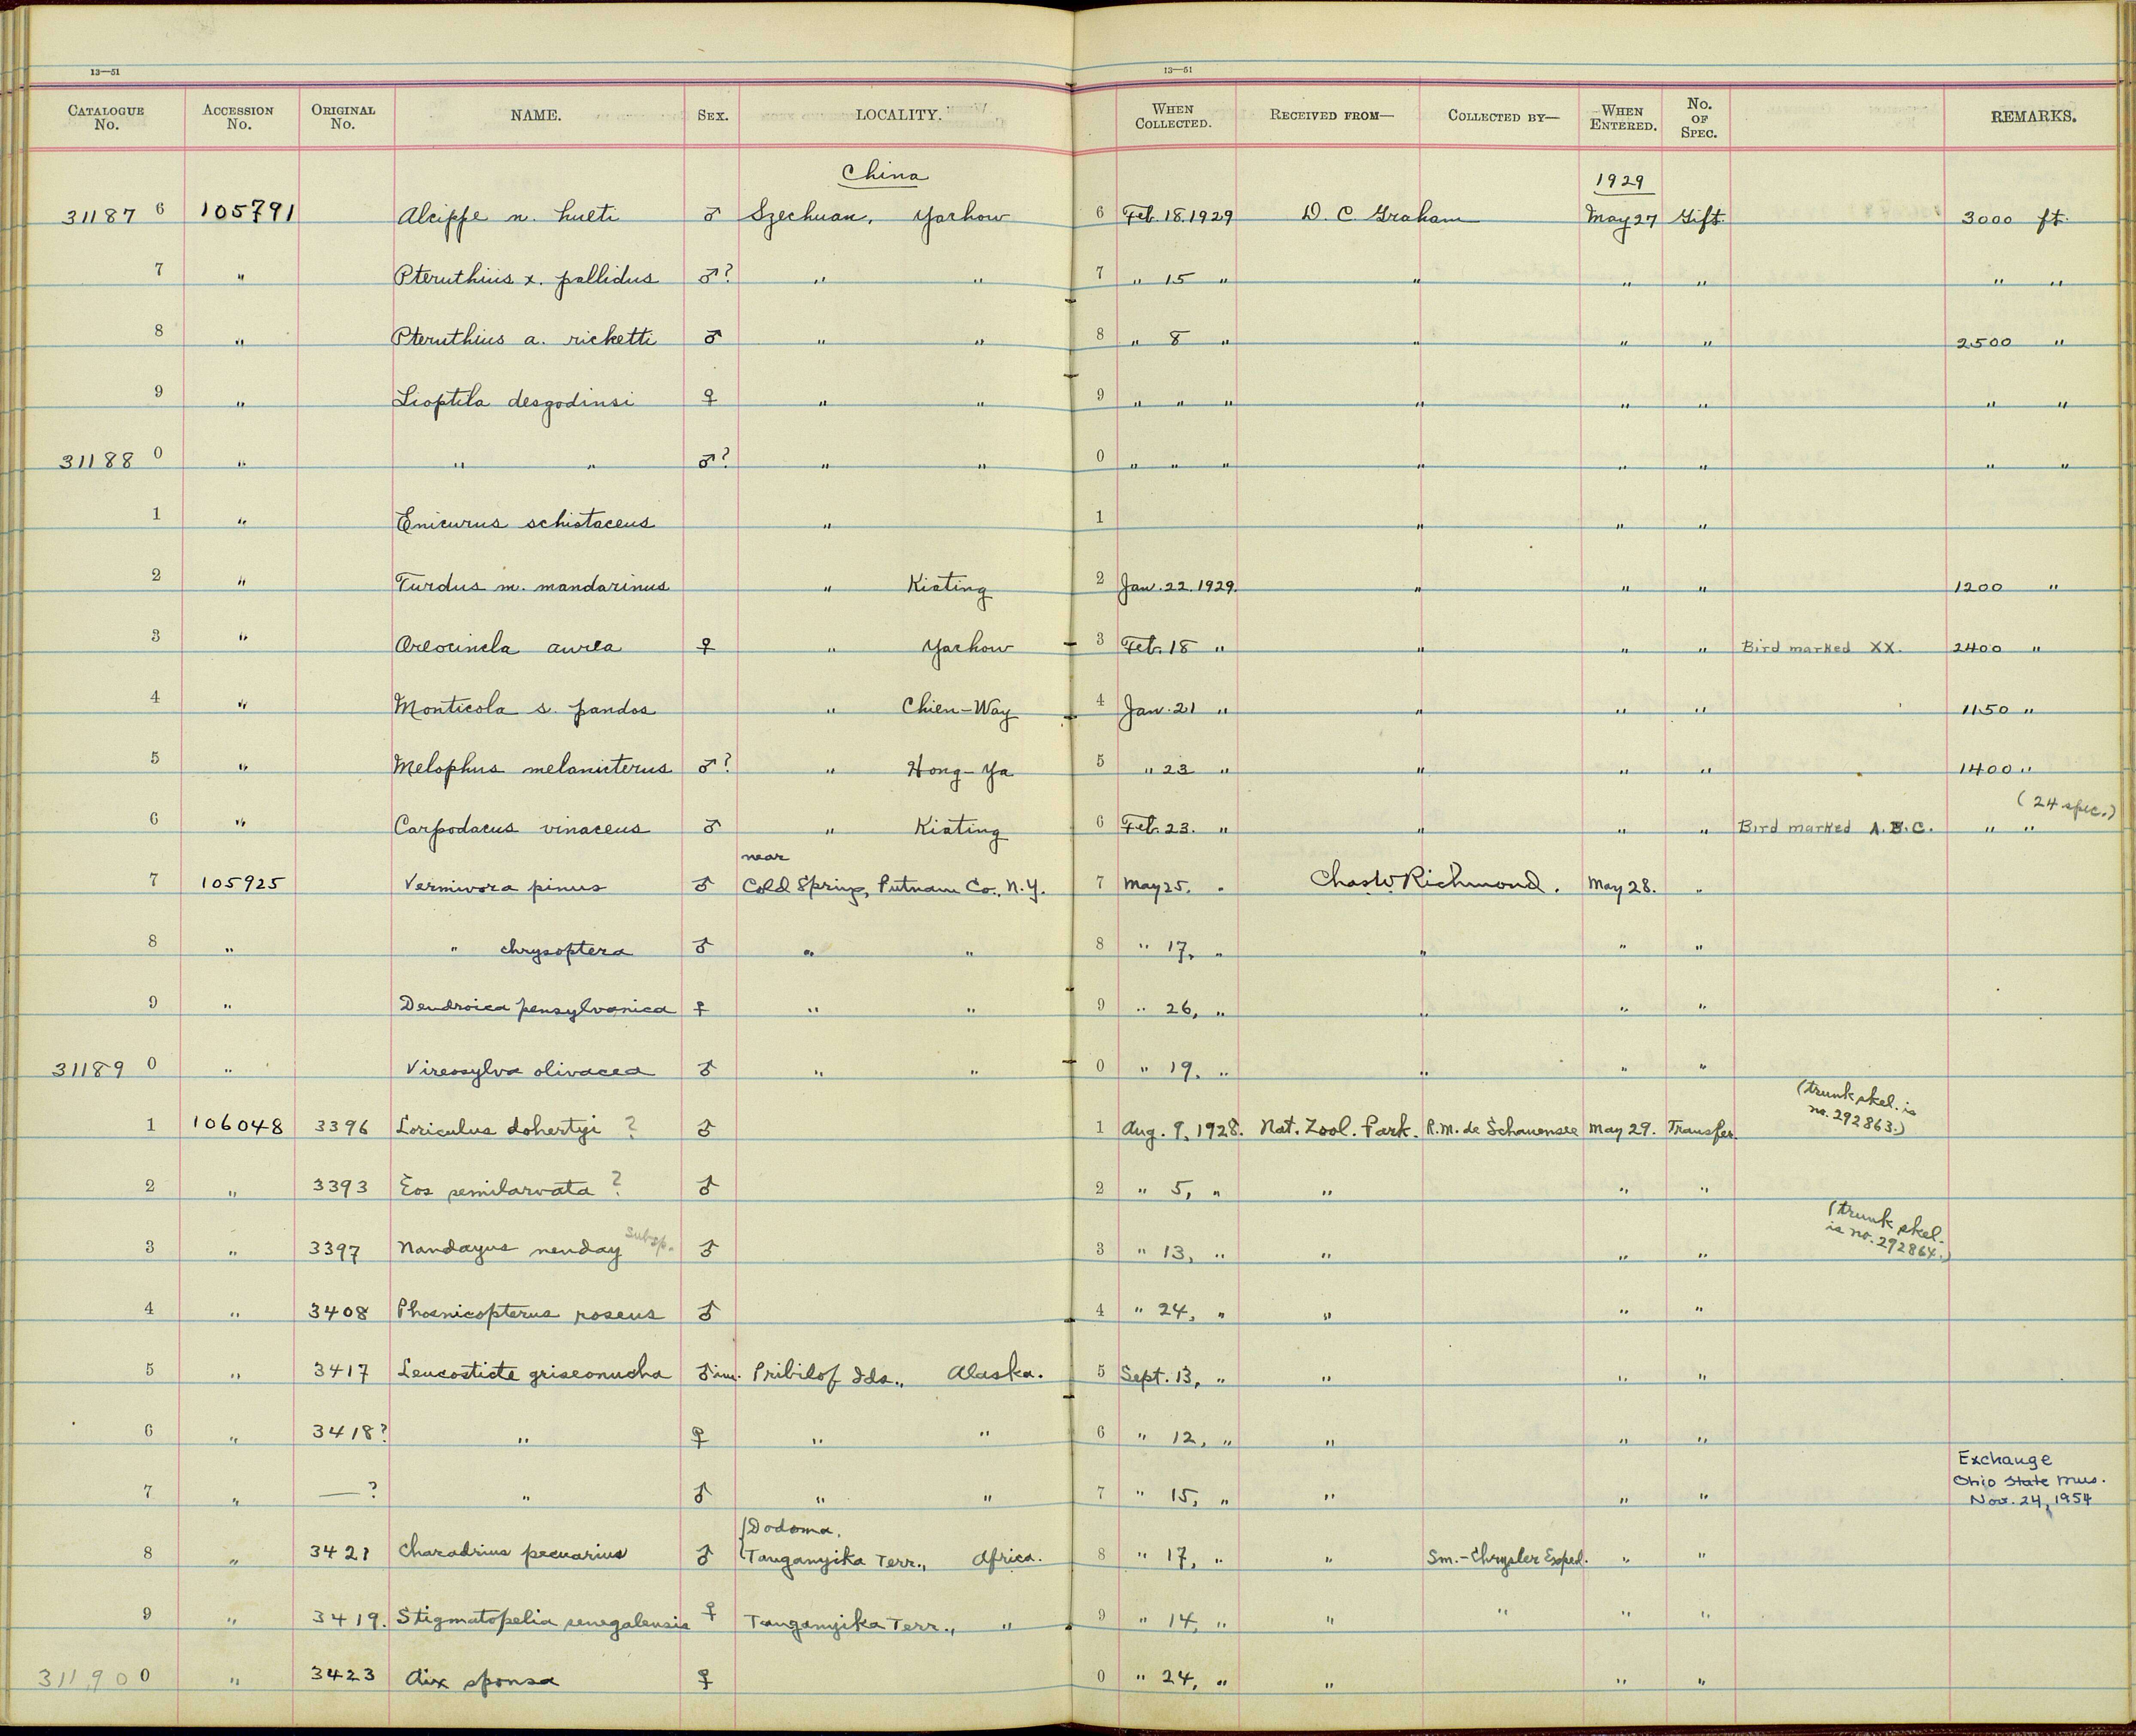 13—51 13—51
CATALOGUE No. ACCESSION No. ORIGINAL No. NAME. SEX. LOCALITY. WHEN COLLECTED. RECEIVED FROM— COLLECTED BY— WHEN ENTERED. No. OF SPEC. REMARKS.
China 1929
31187 6 105791 Alcippe n. hueti ♂ Szechuan, Yachow 6 Feb. 18. 1929 D. C. Graham May 27 Gift. 3000 ft.
7 " Pteruthius x. pallidus ♂? " " 7 " 15 " " " " " "
8 " Pteruthius a. ricketti ♂ " " 8 " 8 " " " " 2500 "
9 " Lioptila desgodinsi ♀ " " 9 " " " " " " " "
31188 0 " " " ♂? " " 0 " " " " " " " "
1 " Enicurus schistaceus " 1 " " "
2 " Turdus m. mandarinus " Kiating 2 Jan. 22. 1929. " " " 1200 "
3 " Oreocincla aurea ♀ " Yachow 3 Feb. 18 " " " " Bird marked XX. 2400 "
4 " Monticola s. pandoo " Chien-Way 4 Jan. 21 " " " " 1150 "
5 " Melophus melanicterus ♂? " Hong-Ya 5 " 23 " " " " 1400 "
(24 spec.)
6 " Carpodacus vinaceus ♂ " Kiating 6 Feb. 23. " " " " Bird marked A.B.C. " "
near
7 105925 Vermivora pinus ♂ Cold Spring, Putnam Co., N.Y. 7 May 25. " Chas. W. Richmond. May 28. "
8 " " chrysoptera ♂ " " 8 " 17, " " " "
9 " Dendroica pensylvanica ♀ " " 9 " 26, " " " "
31189 0 " Vireosylva olivacea ♂ " " 0 " 19, " " " "
(trunk skel. is
no. 292863.)
1 106048 3396 Loriculus dohertyi ? ♂ 1 Aug. 9, 1928. Nat. Zool. Park. R.M. de Schauensee May 29. Transfer.
2 " 3393 Eos semilarvata ? ♂ 2 " 5, " " " "
(trunk skel.
is no. 292864.)
3 " 3397 Nandayus nenday subsp. ♂ 3 " 13, " " " "
4 " 3408 Phoenicopterus roseus ♂ 4 " 24, " " " "
5 " 3417 Leucosticte griseonucha ♂ im. Pribilof Ids., Alaska. 5 Sept. 13, " " " "
6 " 3418? " ♀ " " 6 " 12, " " " "
Exchange
Ohio State Mus.
Nov. 24, 1954
7 " —? " ♂ " " 7 " 15, " " " "
Dodoma,
8 " 3421 Charadrius pecuarius ♂ Tanganyika Terr., Africa. 8 " 17, " " Sm.-Chrysler Exped. " "
9 " 3419. Stigmatopelia senegalensis ♀ Tanganyika Terr., " 9 " 14, " " " " "
311900 0 " 3423 Aix sponsa ♀ 0 " 24, " " " "